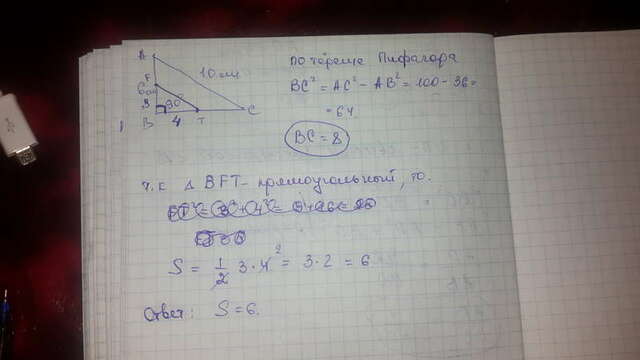 A
F
10 см
6 см
3
90°
B 4 T C
По теореме Пифагора
BC² = AC² - AB² = 100 - 36 =
= 64
BC = 8
т.к Δ BFT - прямоугольный, то.
S = 1/2 3 · 4 = 3 · 2 = 6
Ответ: S = 6.